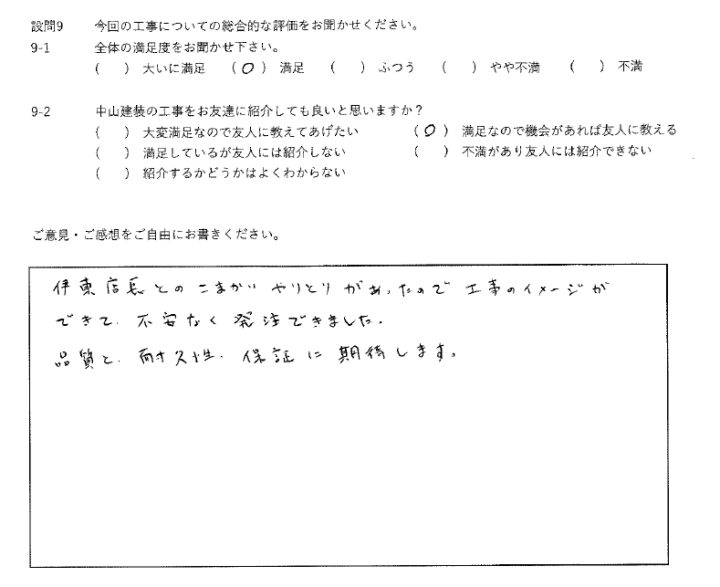 設問9 今回の工事についての総合的な評価をお聞かせください。
9-1 全体の満足度をお聞かせ下さい。
( ) 大いに満足 (O) 満足 ( ) ふつう ( ) やや不満 ( ) 不満
9-2 中山建装の工事をお友達に紹介しても良いと思いますか?
( ) 大変満足なので友人に教えてあげたい (O) 満足なので機会があれば友人に教える
( ) 満足しているが友人には紹介しない ( ) 不満があり友人には紹介できない
( ) 紹介するかどうかはよくわからない
ご意見・ご感想をご自由にお書きください。
伊東店長とのこまかいやりとりがあったので工事のイメージが
できて、不安なく発注できました。
品質と、耐久性、保証に期待します。